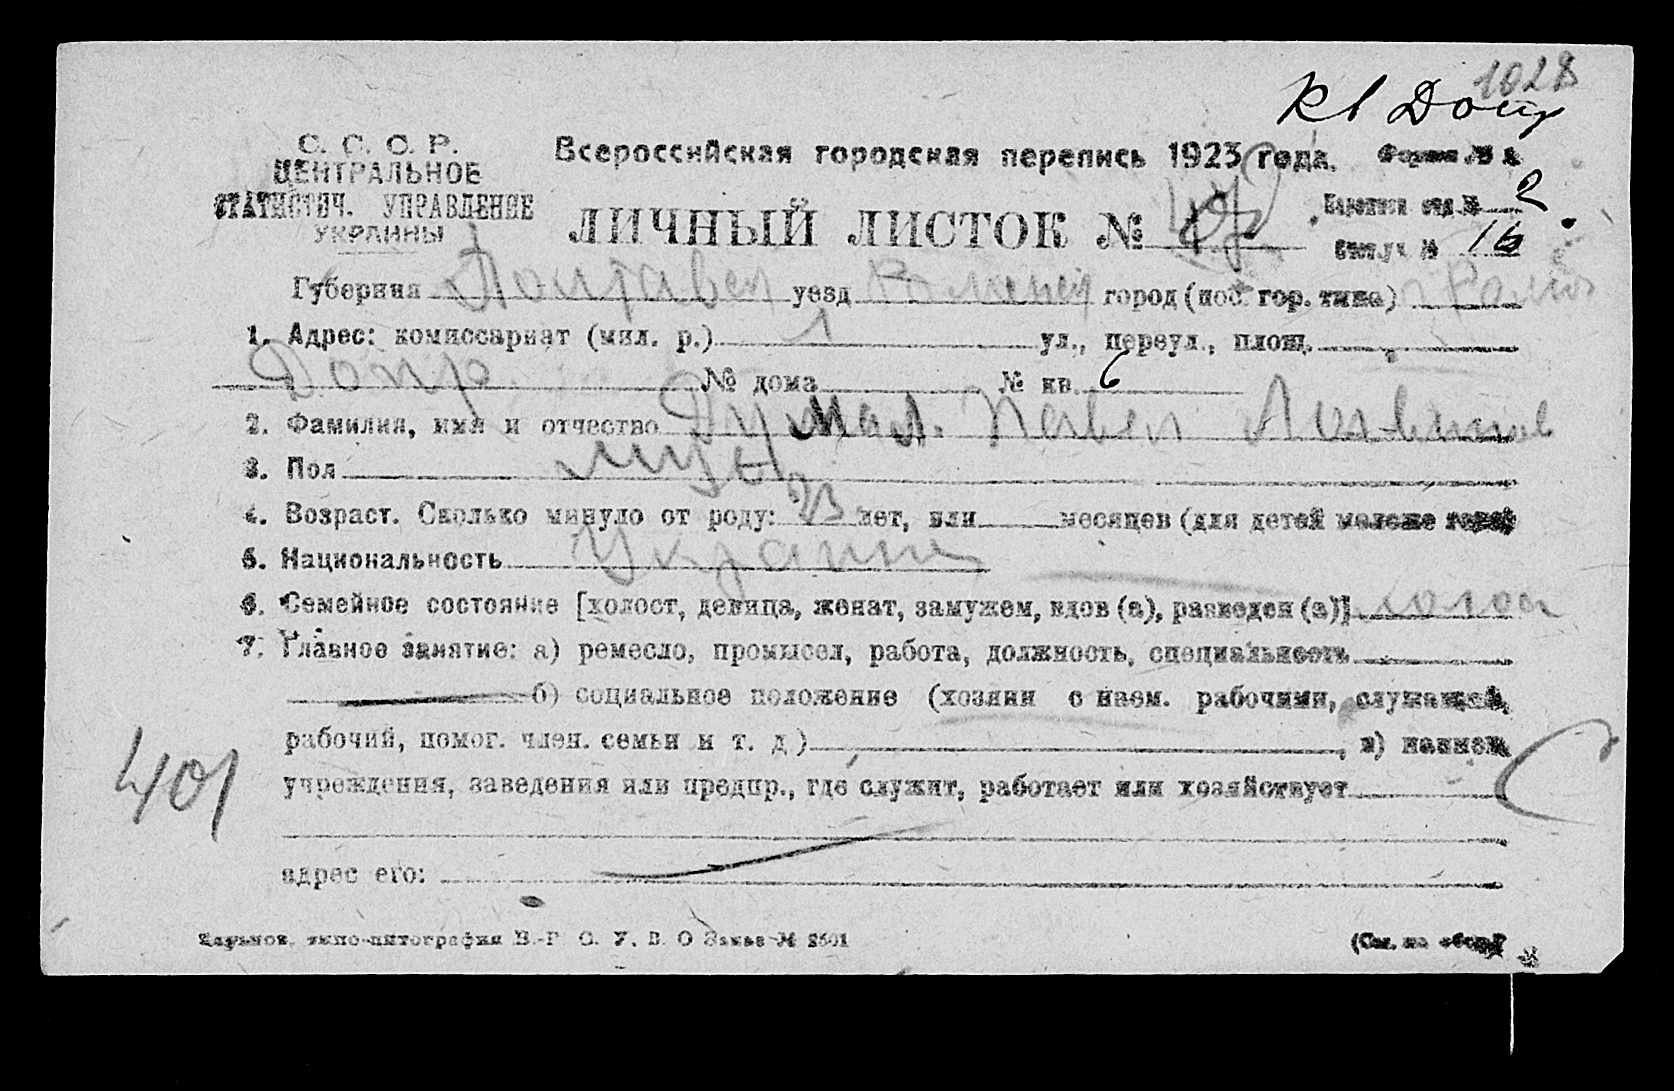 1028
кв Допр
С. С. С. Р.
ЦЕНТРАЛЬНОЕ
СТАТИСТИЧ. УПРАВЛЕНИЕ
УКРАИНЫ
Всероссийская городская перепись 1923 года. Форма №
ЛИЧНЫЙ ЛИСТОК №
отд. № 2
№ 16
Губерния Полтавск уезд Роменск город (пос. гор. типа)
1. Адрес: комиссариат (мил. р.) 1 ул., переул., площ.
Допр. № дома № кв. 6
2. Фамилия, имя и отчество Павел
3. Пол муж
4. Возраст. Сколько минуло от роду: 23 лет, или месяцев (для детей моложе года)
5. Национальность Украинец
6. Семейное состояние [холост, девица, женат, замужем, вдов (а), разведен (а)] холост
7. Главное занятие: а) ремесло, промысел, работа, должность, специальность
б) социальное положение (хозяин с наем. рабочими, служащий,
рабочий, помог. член. семьи и т. д.) , в) наимен.
учреждения, заведения или предпр., где служит, работает или хозяйствует
401
адрес его:
Харьков, типо-литография В.-У. С. У. В. О Заказ № 2501
(См. на обор.)